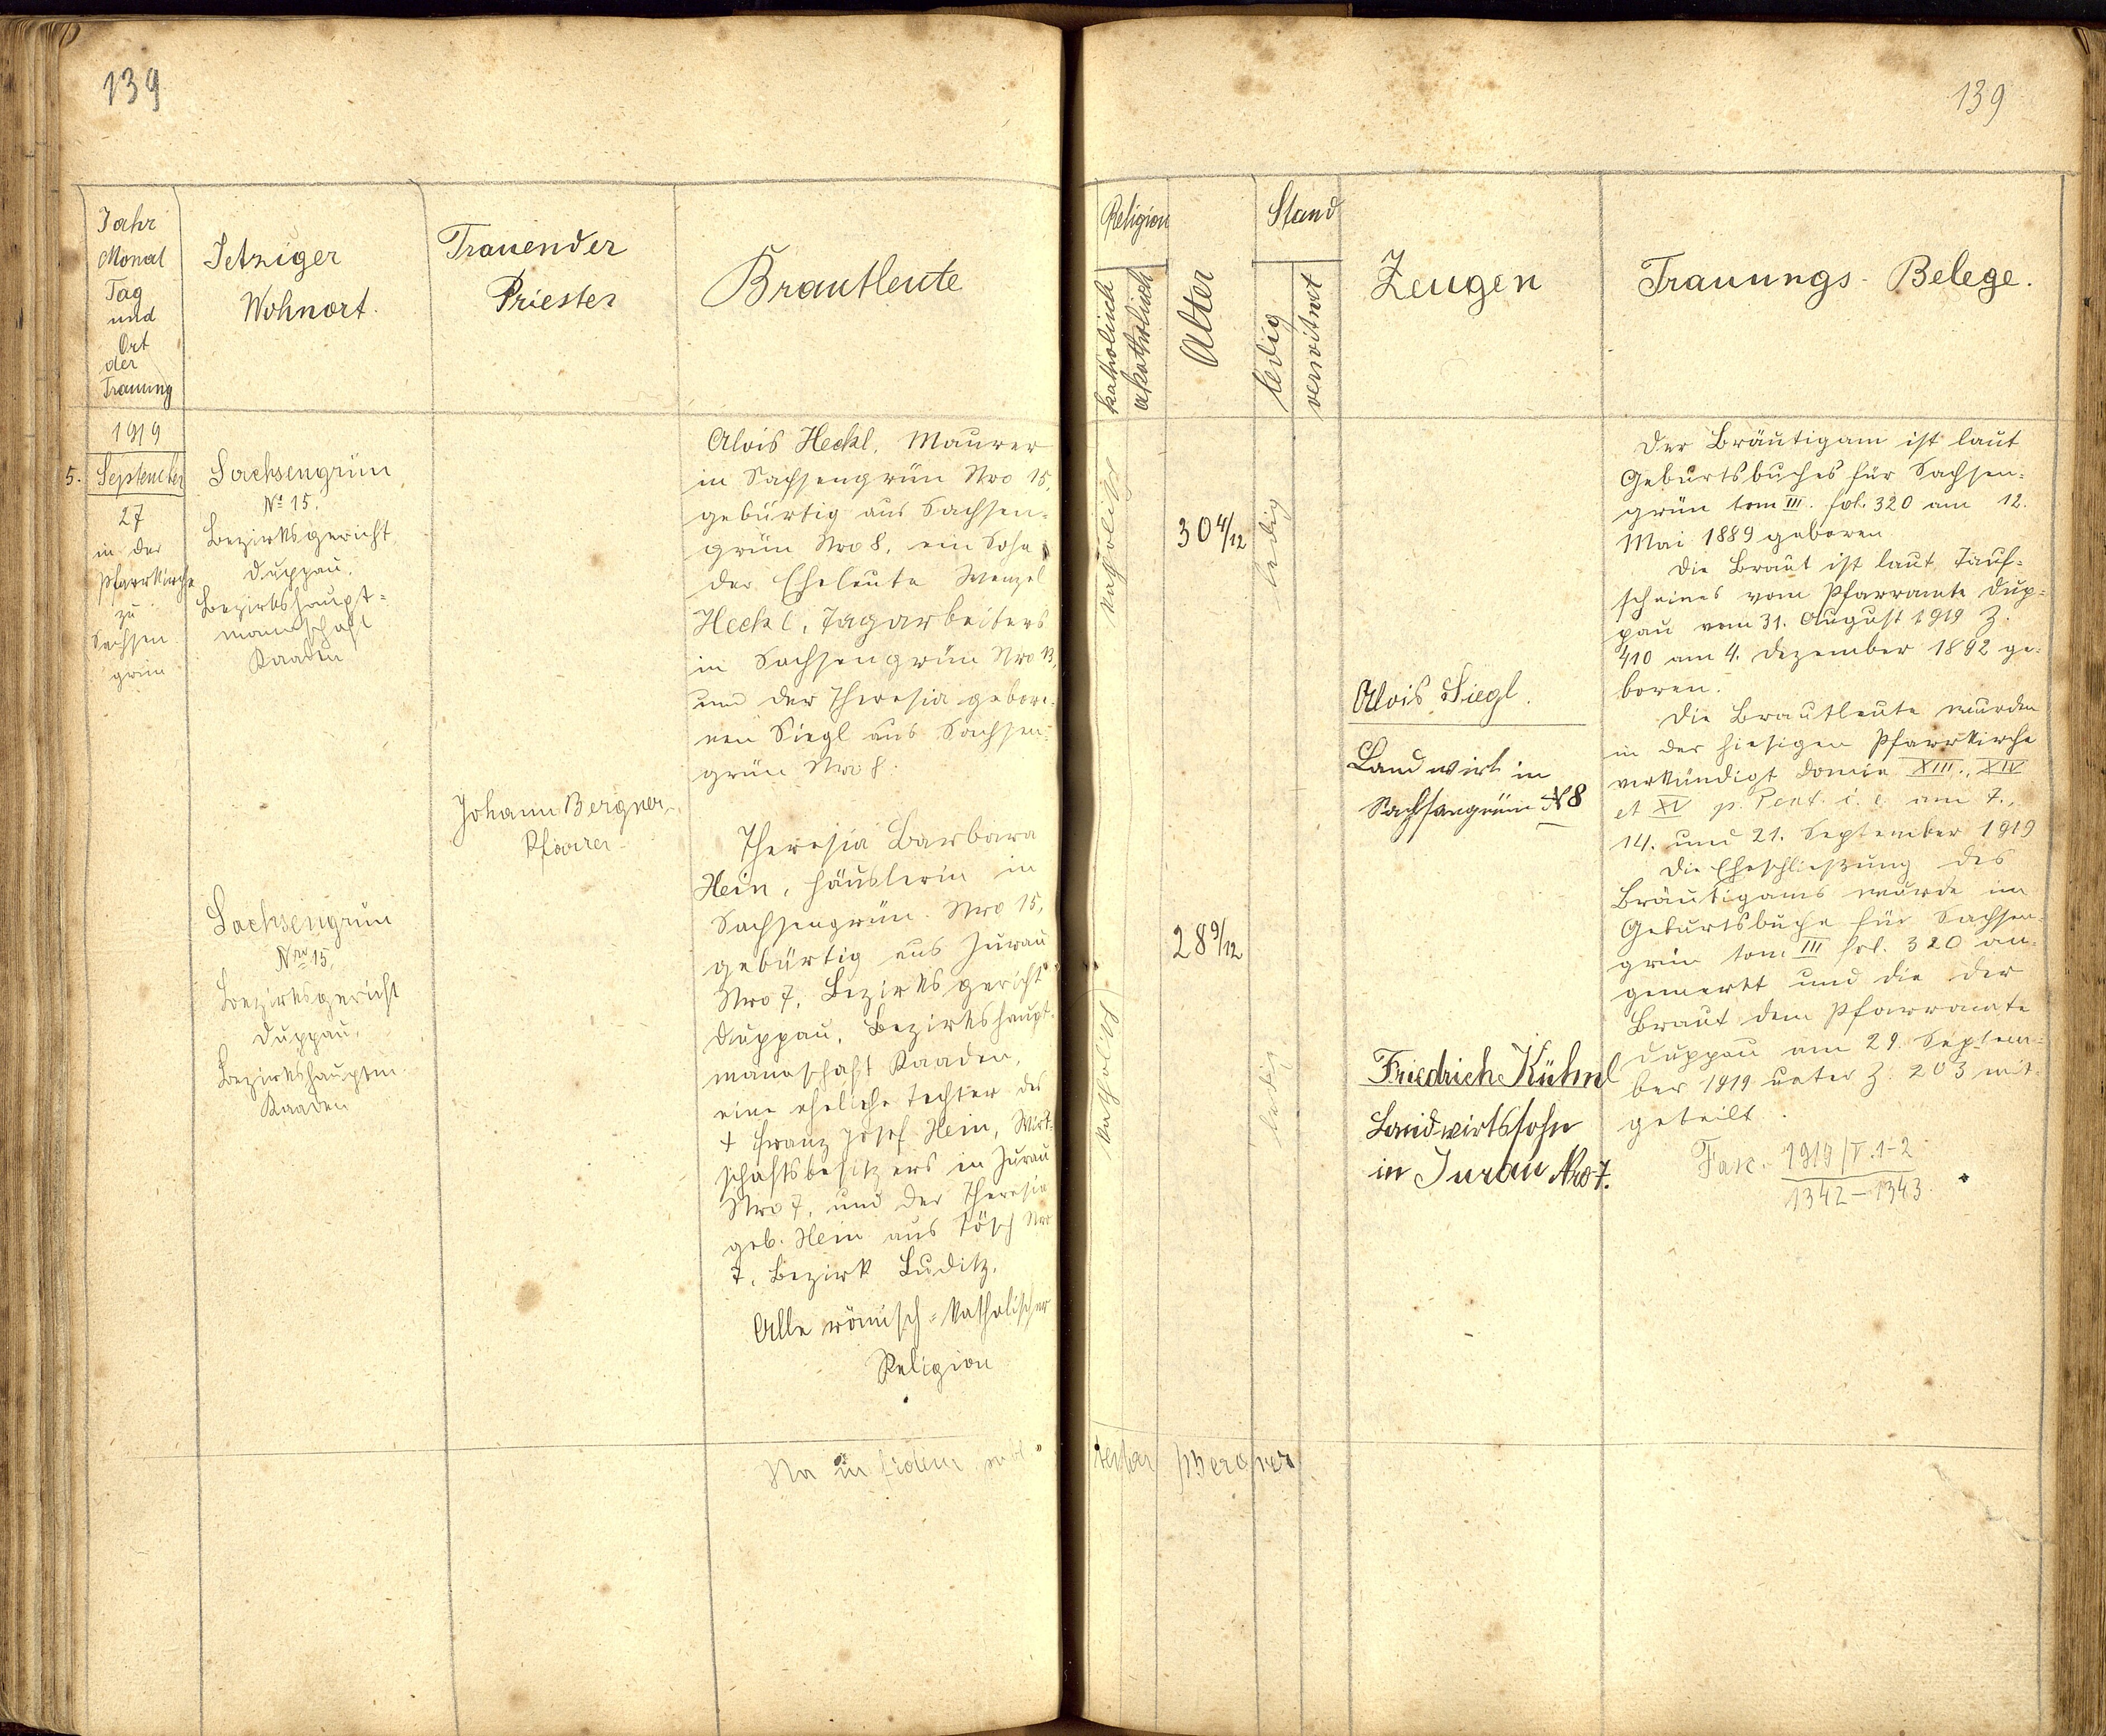 139
139
Jahr
Monat
Tag
und
Ort
der
Trauung
Jetziger
Wohnort.
Trauender
Priester
Brautleute
Religion
katholisch
akatholisch
Alter
Stand
ledig
verwitwet
Zeugen
Trauungs-Belege.
1919
5. September
27
in der
Pfarrkirche
zu
Sachsen
grün
Sachsengrün
No 15.
Bezirksgericht
Duppau,
Bezirkshaupt=
mannschaft
Kaaden
Sachsengrün
Nro 15,
Bezirksgericht
Duppau,
Bezirkshauptm.
Kaaden
Johann Bergner,
Pfarrer
Alois Heckl, Maurer
in Sachsengrün Nro 15,
gebürtig aus Sachsen=
grün Nro 8, ein Sohn
der Eheleute Wenzel
Heckl, Tagarbeiters
in Sachsengrün Nro 13,
und der Theresia gebore=
nen Siegl aus Sachsen=
grün Nro 8.
Theresia Barbara
Hein, Häuslerin in
Sachsengrün Nro 15,
gebürtig aus Jurau
Nro 7, Bezirksgericht
Duppau, Bezirkshaupt=
mannschaft Kaaden,
eine eheliche Tochter des
+ Franz Josef Hein, Wirt=
schaftsbesitzers in Jurau
Nro 7, und der Theresia
geb. Hein aus Tösch Nro
7, Bezirk Luditz.
Alle römisch=katholischer
Religion
katholisch
30 4/12
ledig
katholisch
28 9/12
ledig
Alois Siegl.
Landwirt in
Sachsengrün N 8
Friedrich Kühnl
Landwirtssohn
in Jurau Nro 7.
Der Bräutigam ist laut
Geburtsbuches für Sachsen=
grün tom III. fol. 320 am 12.
Mai 1889 geboren.
Die Braut ist laut Tauf=
scheines vom Pfarramte Dup=
pau vom 31. August 1919 Z.
410 am 4. Dezember 1892 ge=
boren.
Die Brautleute wurden
in der hiesigen Pfarrkirche
verkündigt XIII., XIV
et XV p. Pent. i. e. am 7.,
14. und 21. September 1919
Die Eheschließung des
Bräutigams wurde im
Geburtsbuche für Sachsen=
grün tom III fol. 320 an=
gemerkt und die der
Braut dem Pfarramte
Duppau am 29. Septem=
ber 1919 unter Z. 203 mit=
geteilt.
1919/V. 1-2
1342-1343
in fidem
Bergner